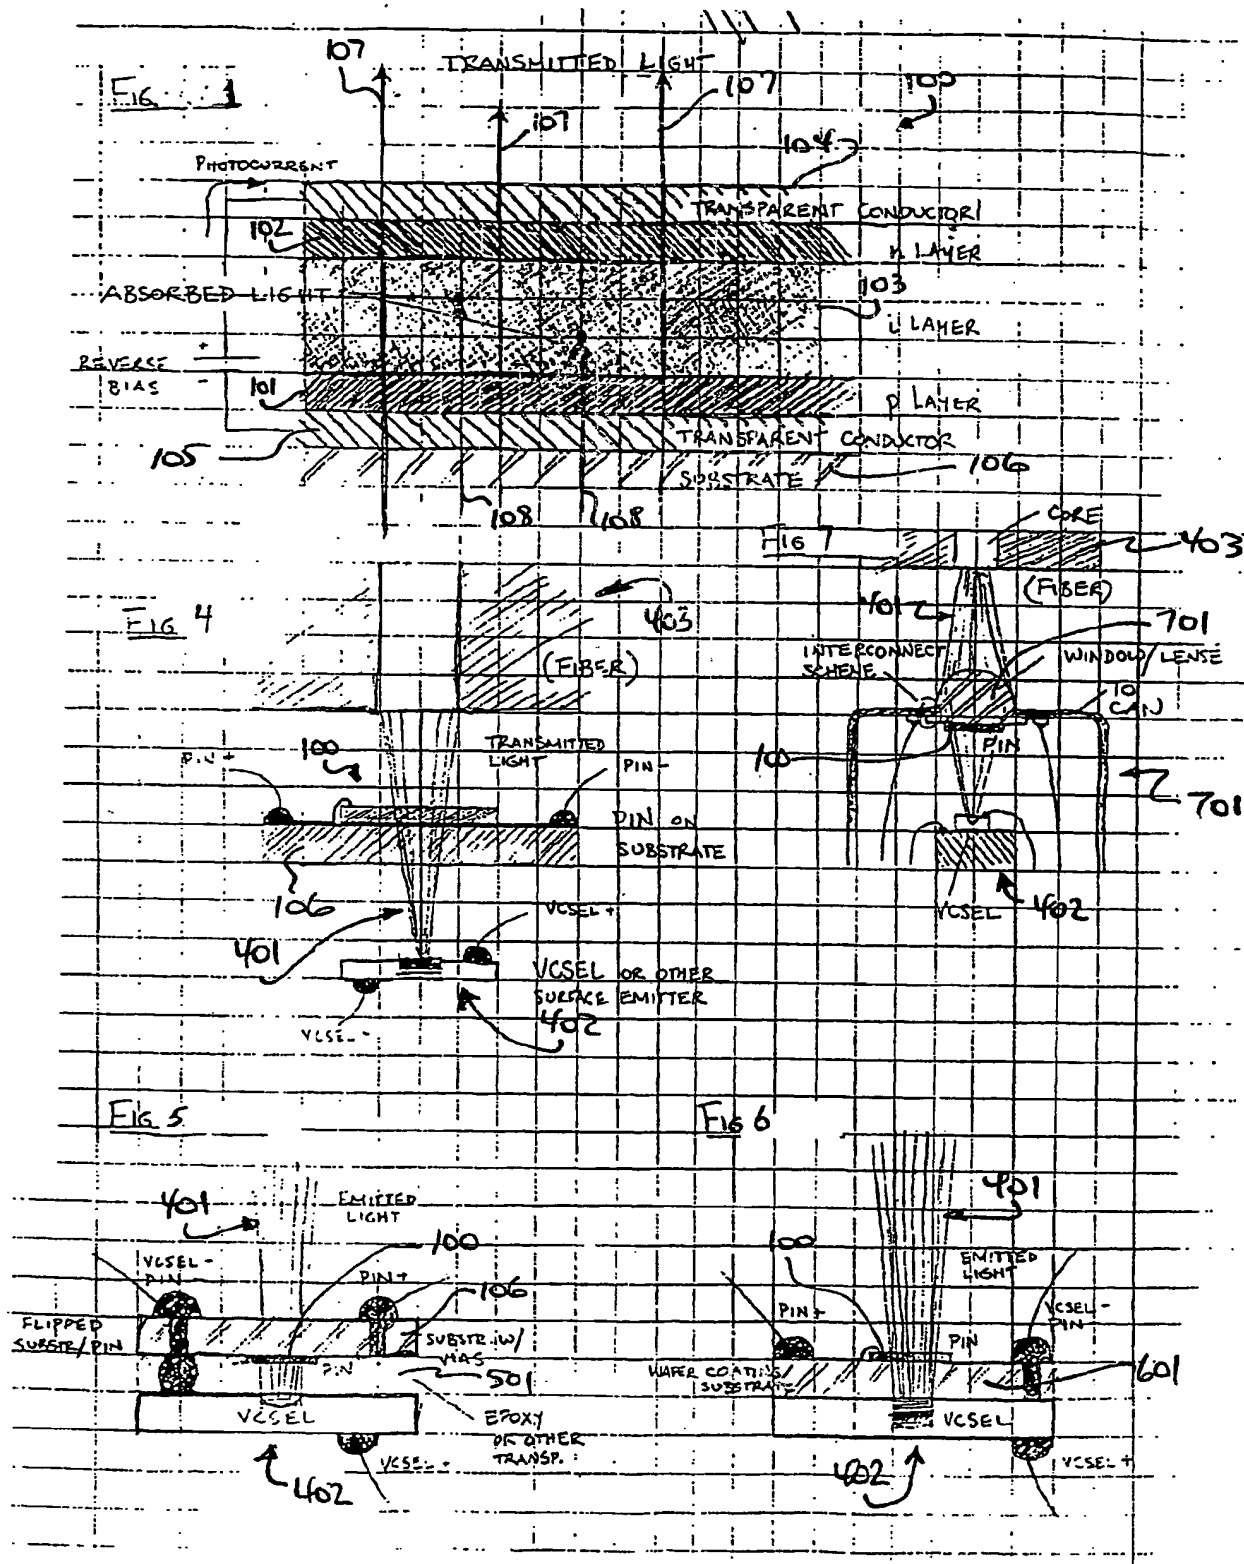 FIG 1
107
TRANSMITTED LIGHT
107
107
100
104
PHOTOCURRENT
TRANSPARENT CONDUCTOR
102
n LAYER
ABSORBED LIGHT
103
i LAYER
+
REVERSE
BIAS
-
101
p LAYER
TRANSPARENT CONDUCTOR
105
106
SUBSTRATE
108
108
FIG 7
CORE
403
(FIBER)
401
701
INTERCONNECT
SCHEME
WINDOW/LENSE
TO
CAN
PIN
100
701
VCSEL
402
FIG 4
403
(FIBER)
TRANSMITTED
LIGHT
100
PIN+
PIN-
PIN ON
SUBSTRATE
106
401
VCSEL+
VCSEL OR OTHER
SURFACE EMITTER
402
VCSEL-
FIG 5
401
EMITTED
LIGHT
100
VCSEL-
PIN-
PIN+
106
FLIPPED
SUBSTR/PIN
SUBSTR. W/
VIAS
PIN
501
VCSEL
EPOXY
OR OTHER
TRANSP.
VCSEL+
402
FIG 6
401
100
EMITTED
LIGHT
PIN+
VCSEL-
PIN-
PIN
WAFER COATING/
SUBSTRATE
601
VCSEL
VCSEL+
402